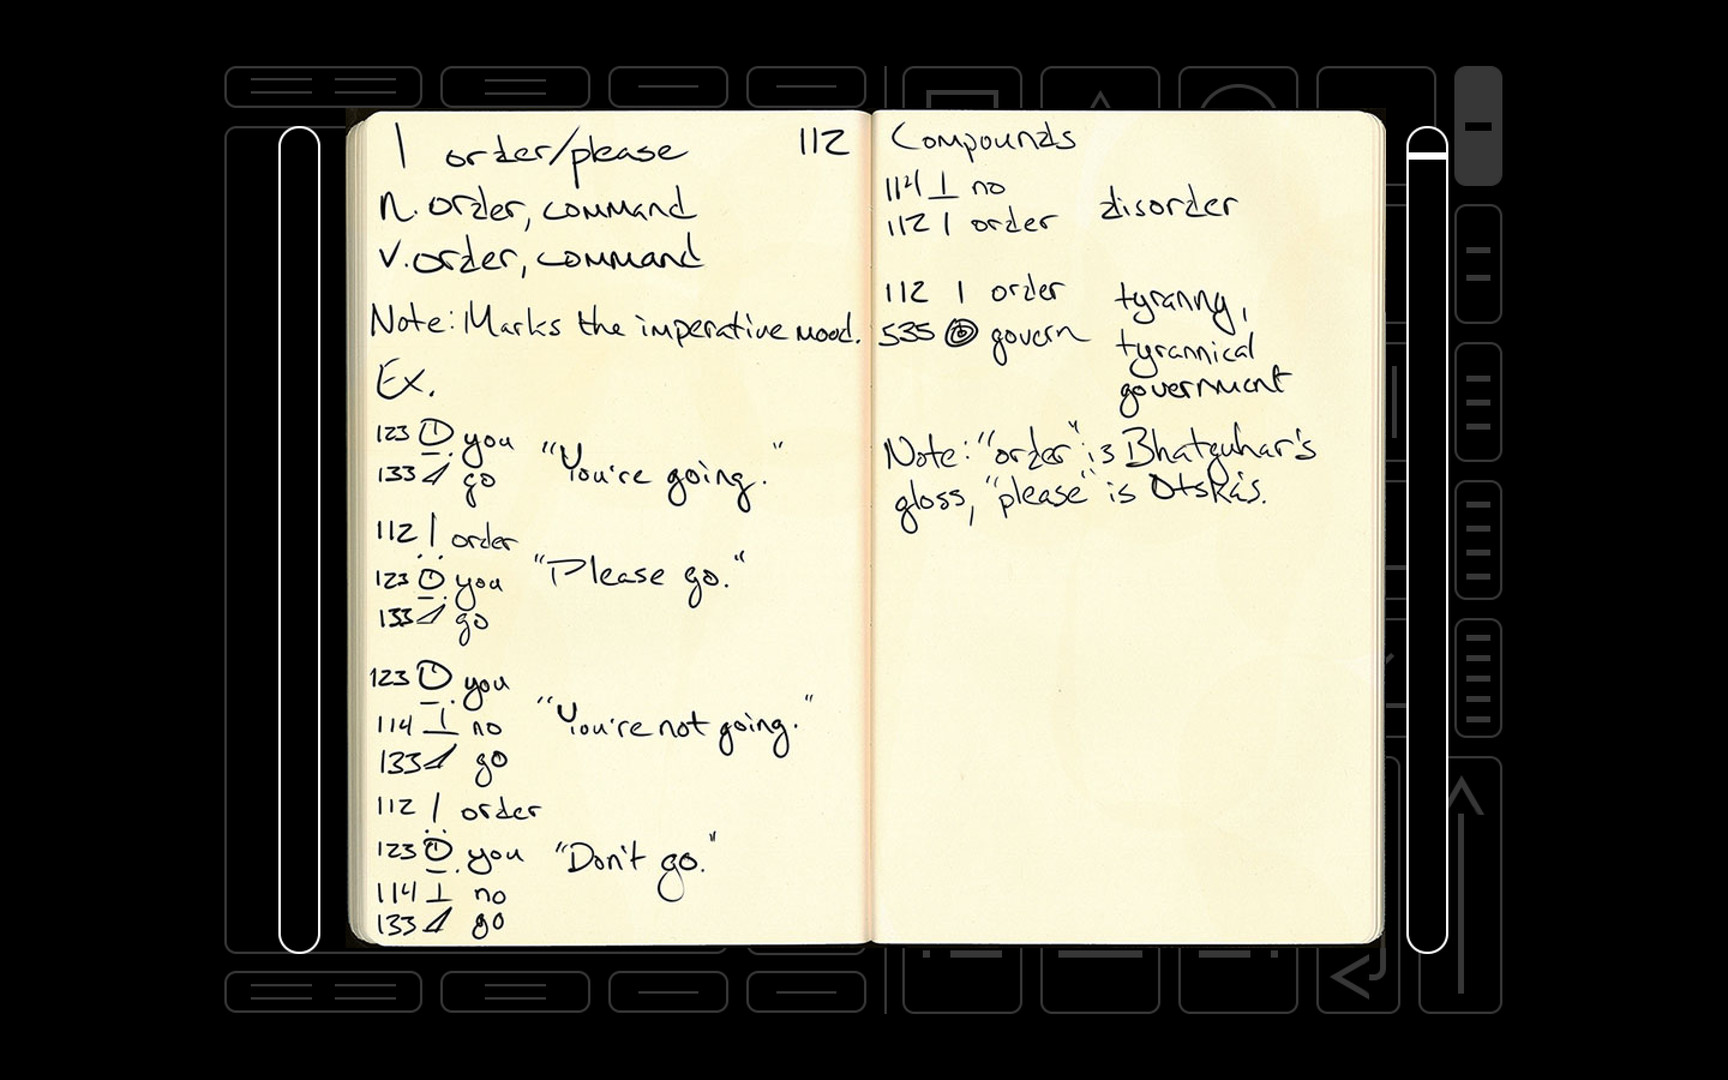 | order/please 112
n. order, command
v. order, command
Note: Marks the imperative mood.
Ex.
123 you "You're going."
133 go
112 | order
123 you "Please go."
133 go
123 you
114 ⊥ no "You're not going."
133 go
112 | order
123 you "Don't go."
114 ⊥ no
133 go
Compounds
114 ⊥ no disorder
112 | order
112 | order tyranny,
535 govern tyrannical
government
Note: "order" is Bhatguhar's
gloss, "please" is Otska's.